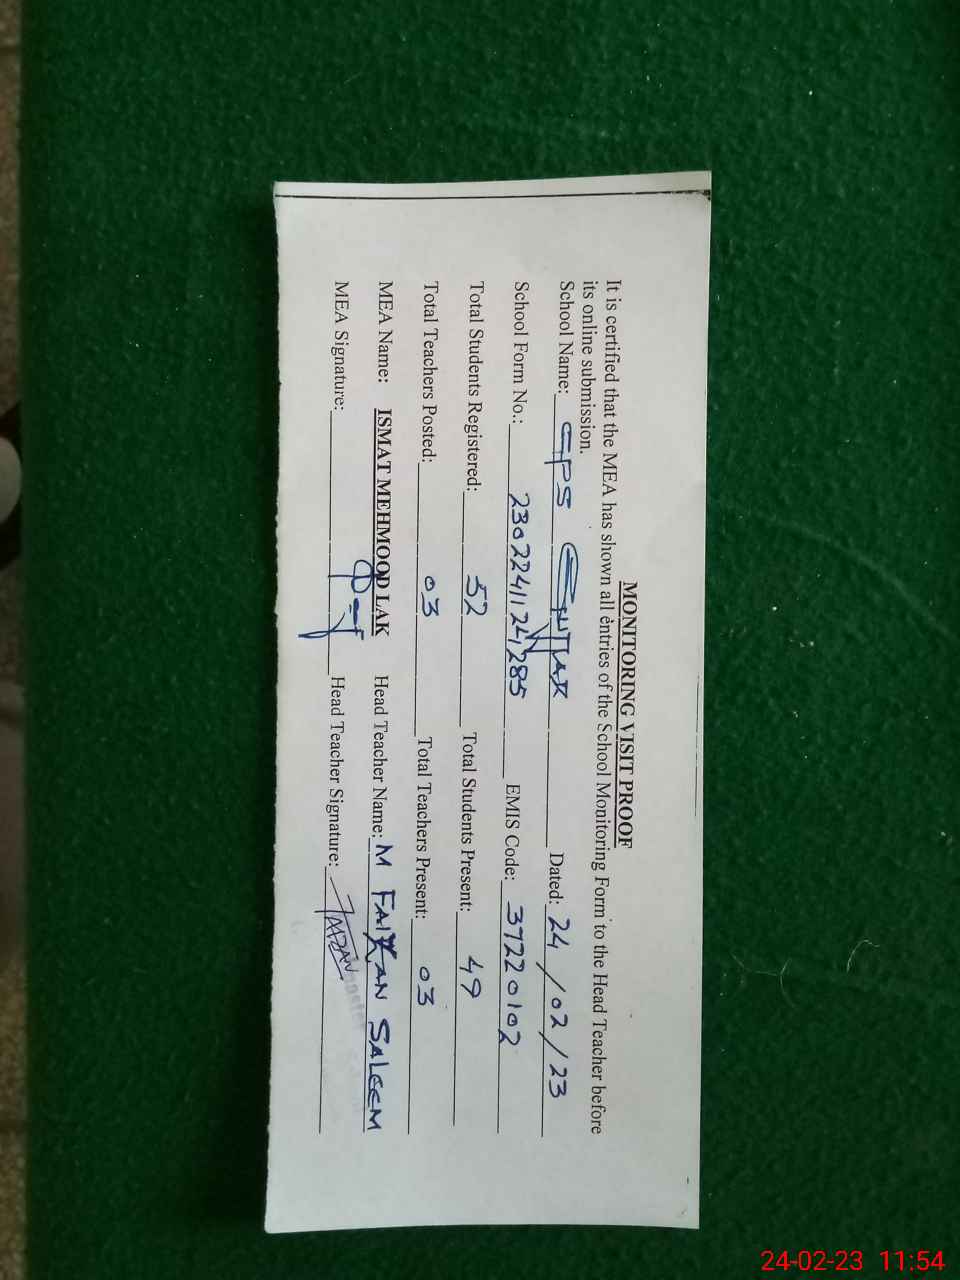 MONITORING VISIT PROOF
It is certified that the MEA has shown all entries of the School Monitoring Form to the Head Teacher before
its online submission.
School Name: GPS Dated: 24/02/23
School Form No.: EMIS Code: 37220102
Total Students Registered: 52 Total Students Present: 49
Total Teachers Posted: 03 Total Teachers Present: 03
MEA Name: ISMAT MEHMOOD LAK Head Teacher Name: M FAIZAN SALEEM
MEA Signature: Head Teacher Signature:
24-02-23 11:54